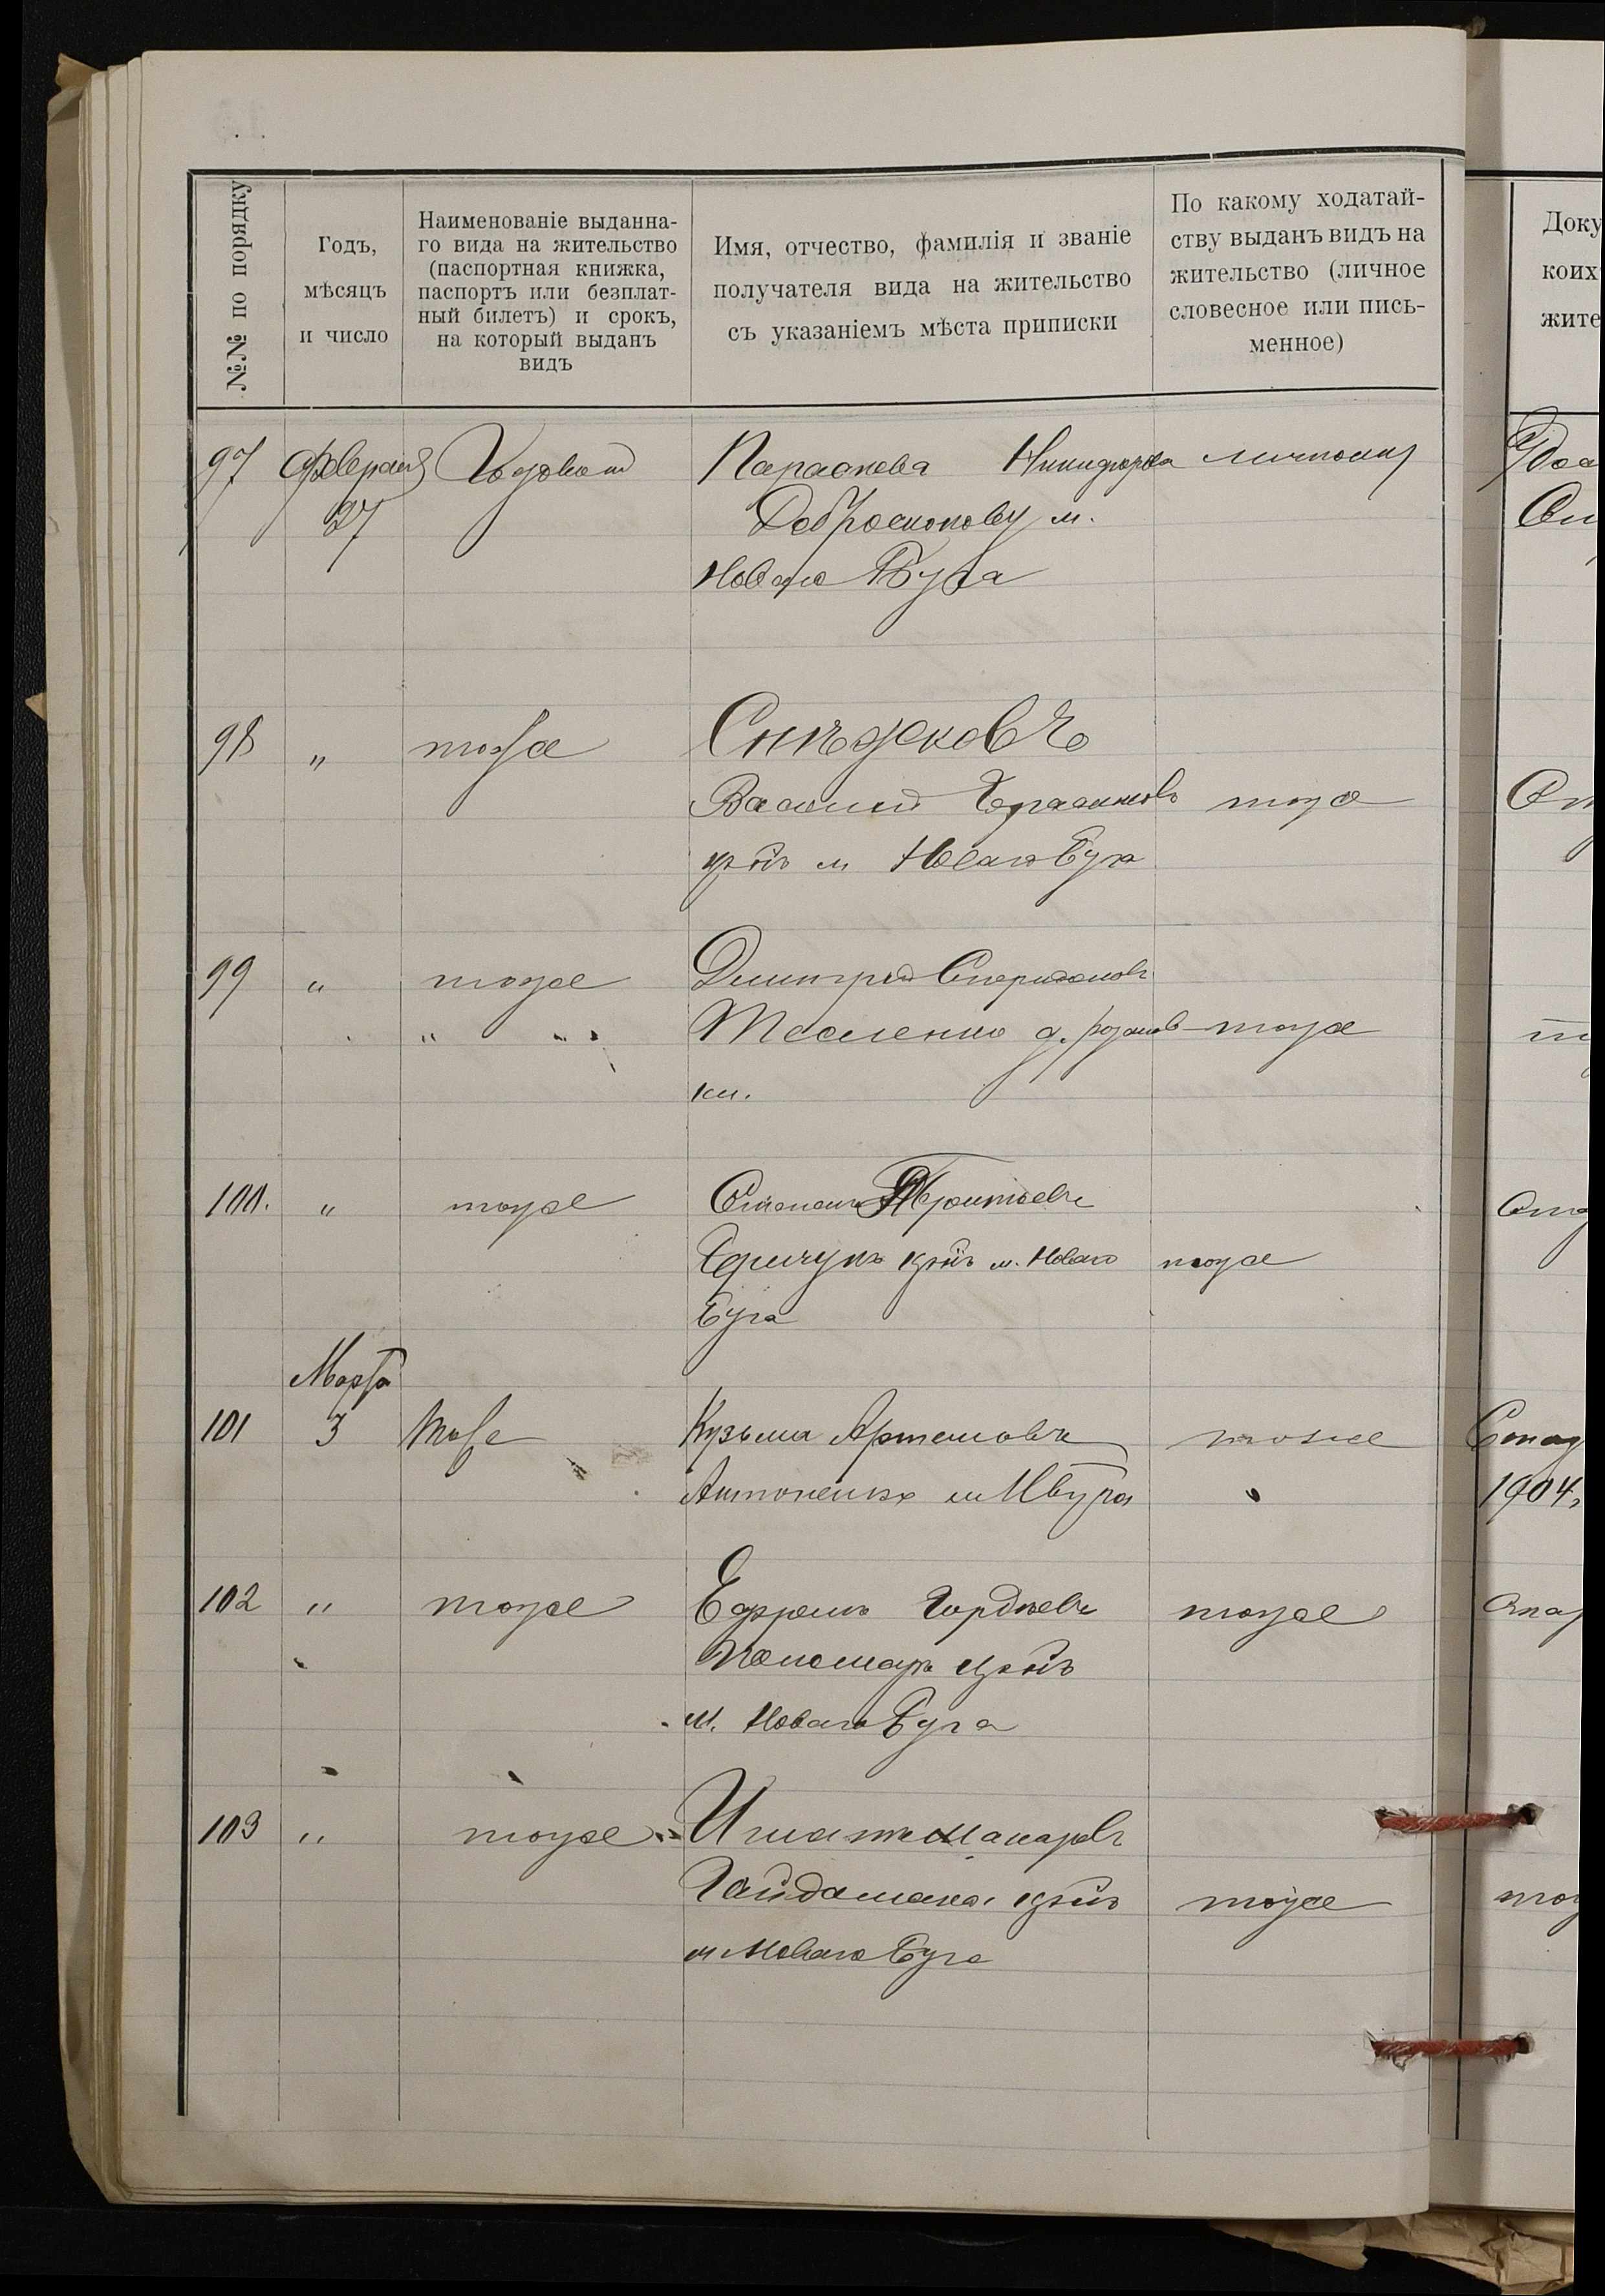 №№ по порядку
Годъ,
мѣсяцъ
и число
Наименованіе выданна-
го вида на жительство
(паспортная книжка,
паспортъ или безплат-
ный билетъ) и срокъ,
на который выданъ
видъ
Имя, отчество, фамилія и званіе
получателя вида на жительство
съ указаніемъ мѣста приписки
По какому ходатай-
ству выданъ видъ на
жительство (личное
словесное или пись-
менное)
Доку
коих
жите
97 Февраля Годовой Параскева Никифорова личному
27 Доброскокову м.
Новаго Буга
98 " тоже Снѣжковъ
Василий Герасимовъ тоже
кр-нъ м Новаго Буга
99 " тоже Дмитрий Спиридоновъ
" Тесленко д. тоже
ки.
100. " тоже Степанъ
кр-нъ м. Новаго тоже
Буга
Марта
101 3 тоже Кузьма Артемовъ тоже
Антоненко м Н Буга
1904
102 " тоже Ефремъ Гордѣевъ тоже
Пономарь кр-нъ
м. Новаго Буга
103 " тоже Игнатъ Макаровъ
Гайдамака кр-нъ тоже
м Новаго Буга